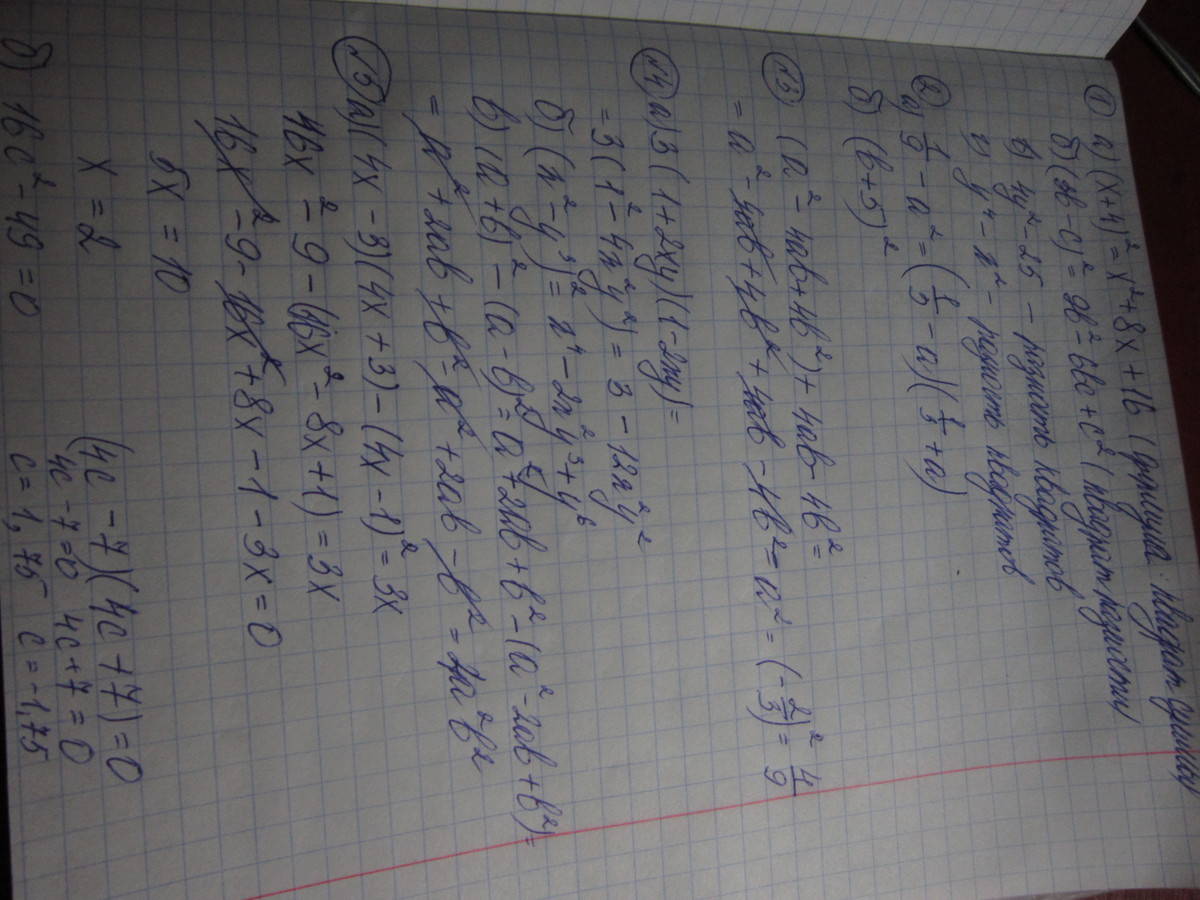 ① а) (x+4)² = x² + 8x + 16 (формула: квадрат суммы)
б) (3b - c)² = 9b² - 6bc + c² (квадрат разности)
в) 4y² - 25 - разность квадратов
г) y⁴ - x² - разность квадратов
② а) 1/9 - a² = (1/3 - a)(1/3 + a)
б) (b+5)²
№3 (a² - 4ab + 4b²) + 4ab - 4b² =
= a² - 4ab + 4b² + 4ab - 4b² = a² = (-2/3)² = 4/9
№4 а) 3(1 + 2xy)(1 - 2xy) =
= 3(1² - 4x²y²) = 3 - 12x²y²
б) (x² - y³)² = x⁴ - 2x²y³ + y⁶
в) (a+b)² - (a-b)² = a² + 2ab + b² - (a² - 2ab + b²) =
= a² + 2ab + b² - a² + 2ab - b² = 4a²b²
№5 а) (4x - 3)(4x + 3) - (4x - 1)² = 3x
16x² - 9 - (16x² - 8x + 1) = 3x
16x² - 9 - 16x² + 8x - 1 - 3x = 0
5x = 10
x = 2
б) 16c² - 49 = 0
(4c - 7)(4c + 7) = 0
4c - 7 = 0 4c + 7 = 0
c = 1,75 c = -1,75